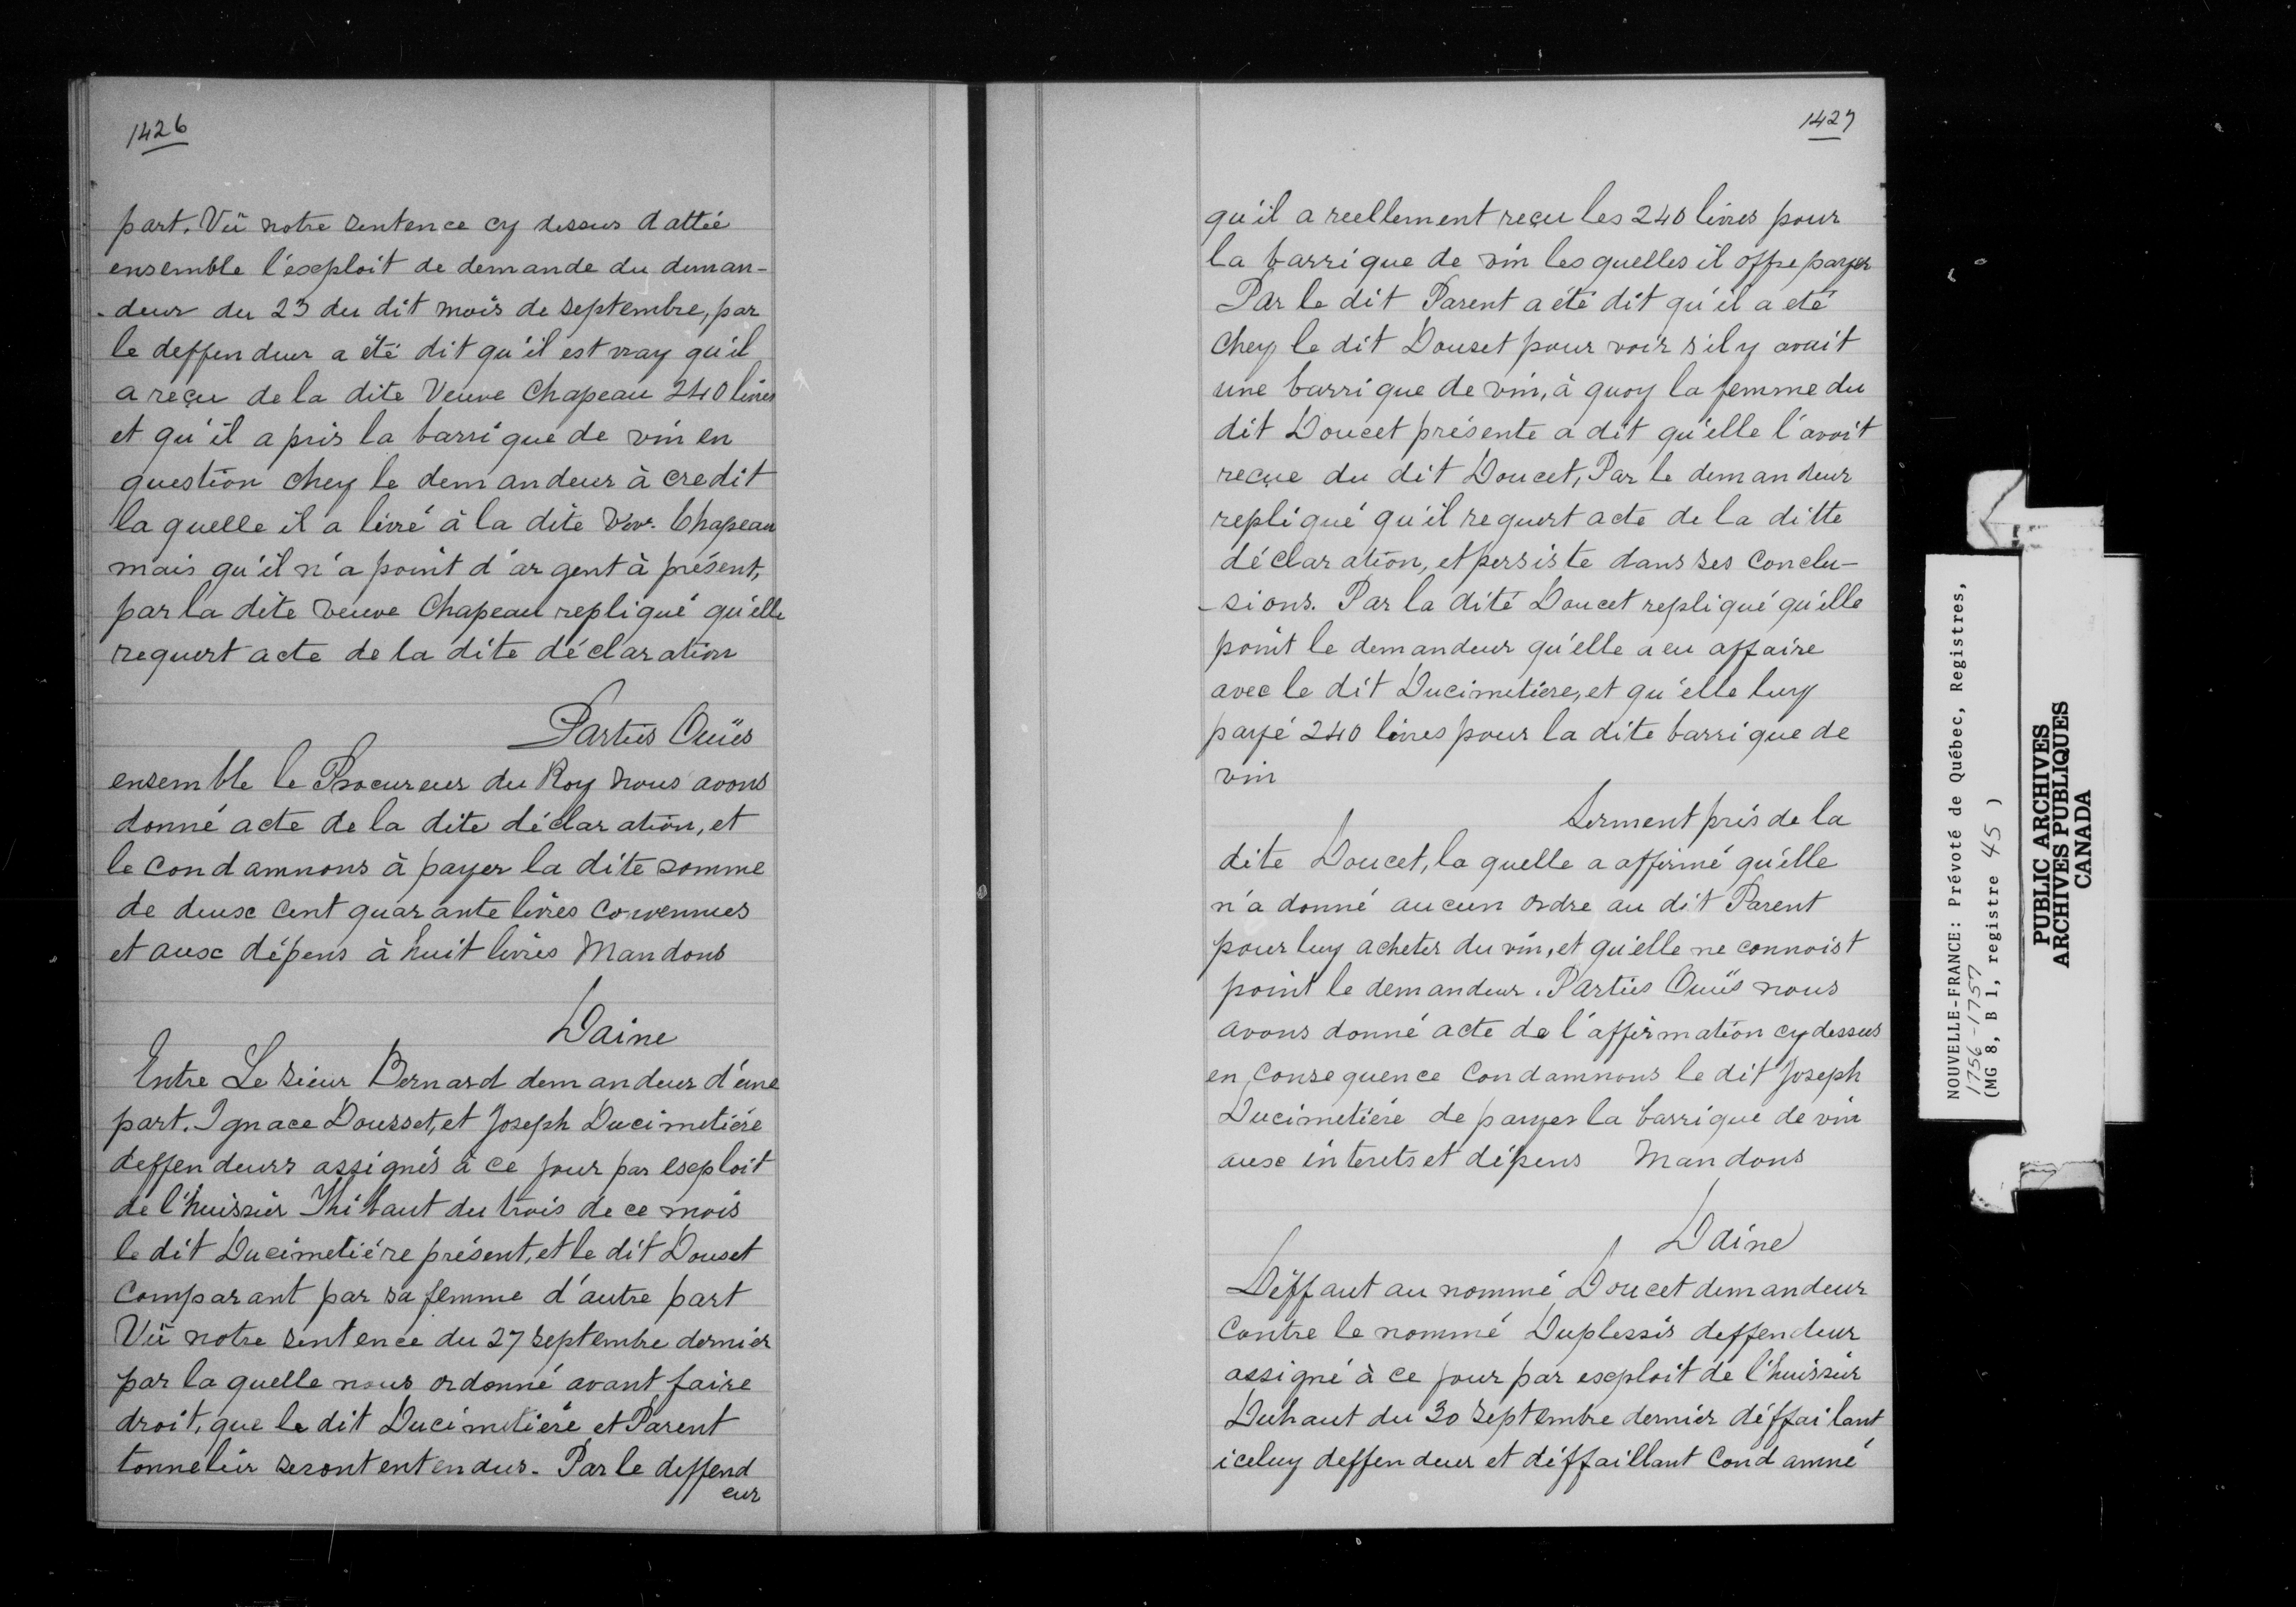 1426
part. Vû notre sentence cy dessus dattée
ensemble l'exploit de demande du deman-
-deur du 23 du dit mois de septembre, par
le deffendeur a été dit qu'il est vray qu'il
a reçu de la dite Veuve Chapeau 240 livres
et qu'il a pris la barrique de vin en
question chez le demandeur à credit
la quelle il a livré à la dite Vve. Chapeau
mais qu'il n'a point d'argent à présent,
par la dite veuve Chapeau repliqué qu'elle
requert acte de la dite déclaration
Parties Ouïes
ensemble le Procureur du Roy nous avons
donné acte de la dite déclaration, et
le condamnons à payer la dite somme
de deux cent quarante livres convenues
et aux dépens à huit livres Mandons
Daine
Entre Le sieur Bernard demandeur d'une
part. Ignace Dousset, et Joseph Ducimetiére
deffendeurs assignés à ce jour par exploit
de l'huissier Thibaut du trois de ce mois
le dit Ducimetiére présent, et le dit Douset
comparant par sa femme d'autre part
Vû notre sentence du 27 septembre dernier
par la quelle nous ordonné avant faire
droit, que le dit Ducimetiére et Parent
tonnelier seront entendus. Par le deffend
eur
1427
qu'il a reellement reçu les 240 livres pour
la barrique de vin les quelles il offre payer
Par le dit Parent a été dit qu'il a eté
chez le dit Douset pour voir s'il y avait
une barrique de vin, à quoy la femme du
dit Doucet présente a dit qu'elle l'avoit
reçue du dit Doucet, Par le demandeur
repliqué qu'il requert acte de la ditte
déclaration, et persiste dans ses conclu-
-sions. Par la dité Doucet repliqué qu'elle
point le demandeur qu'elle a eu affaire
avec le dit Ducimetiere, et qu'elle luy
payé 240 livres pour la dite barrique de
vin
Serment pris de la
dite Doucet, la quelle a affirmé qu'elle
n'a donné aucun ordre au dit Parent
pour luy acheter du vin, et qu'elle ne connoist
point le demandeur. Parties Ouïes nous
avons donné acte de l'affirmation cy dessus
en consequence condamnons le dit Joseph
Ducimetiére de payer la barrique de vin
aux interets et dépens Mandons
Daine
Déffaut au nommé Doucet demandeur
contre le nommé Duplessis deffendeur
assigné à ce jour par exploit de l'huissier
Duhaut du 30 septembre dernier déffailant
iceluy deffendeur et déffaillant condamné
NOUVELLE-FRANCE: Prévoté de Québec, Registres,
1756-1757
(MG 8, B 1, registre 45 )
PUBLIC ARCHIVES
ARCHIVES PUBLIQUES
CANADA